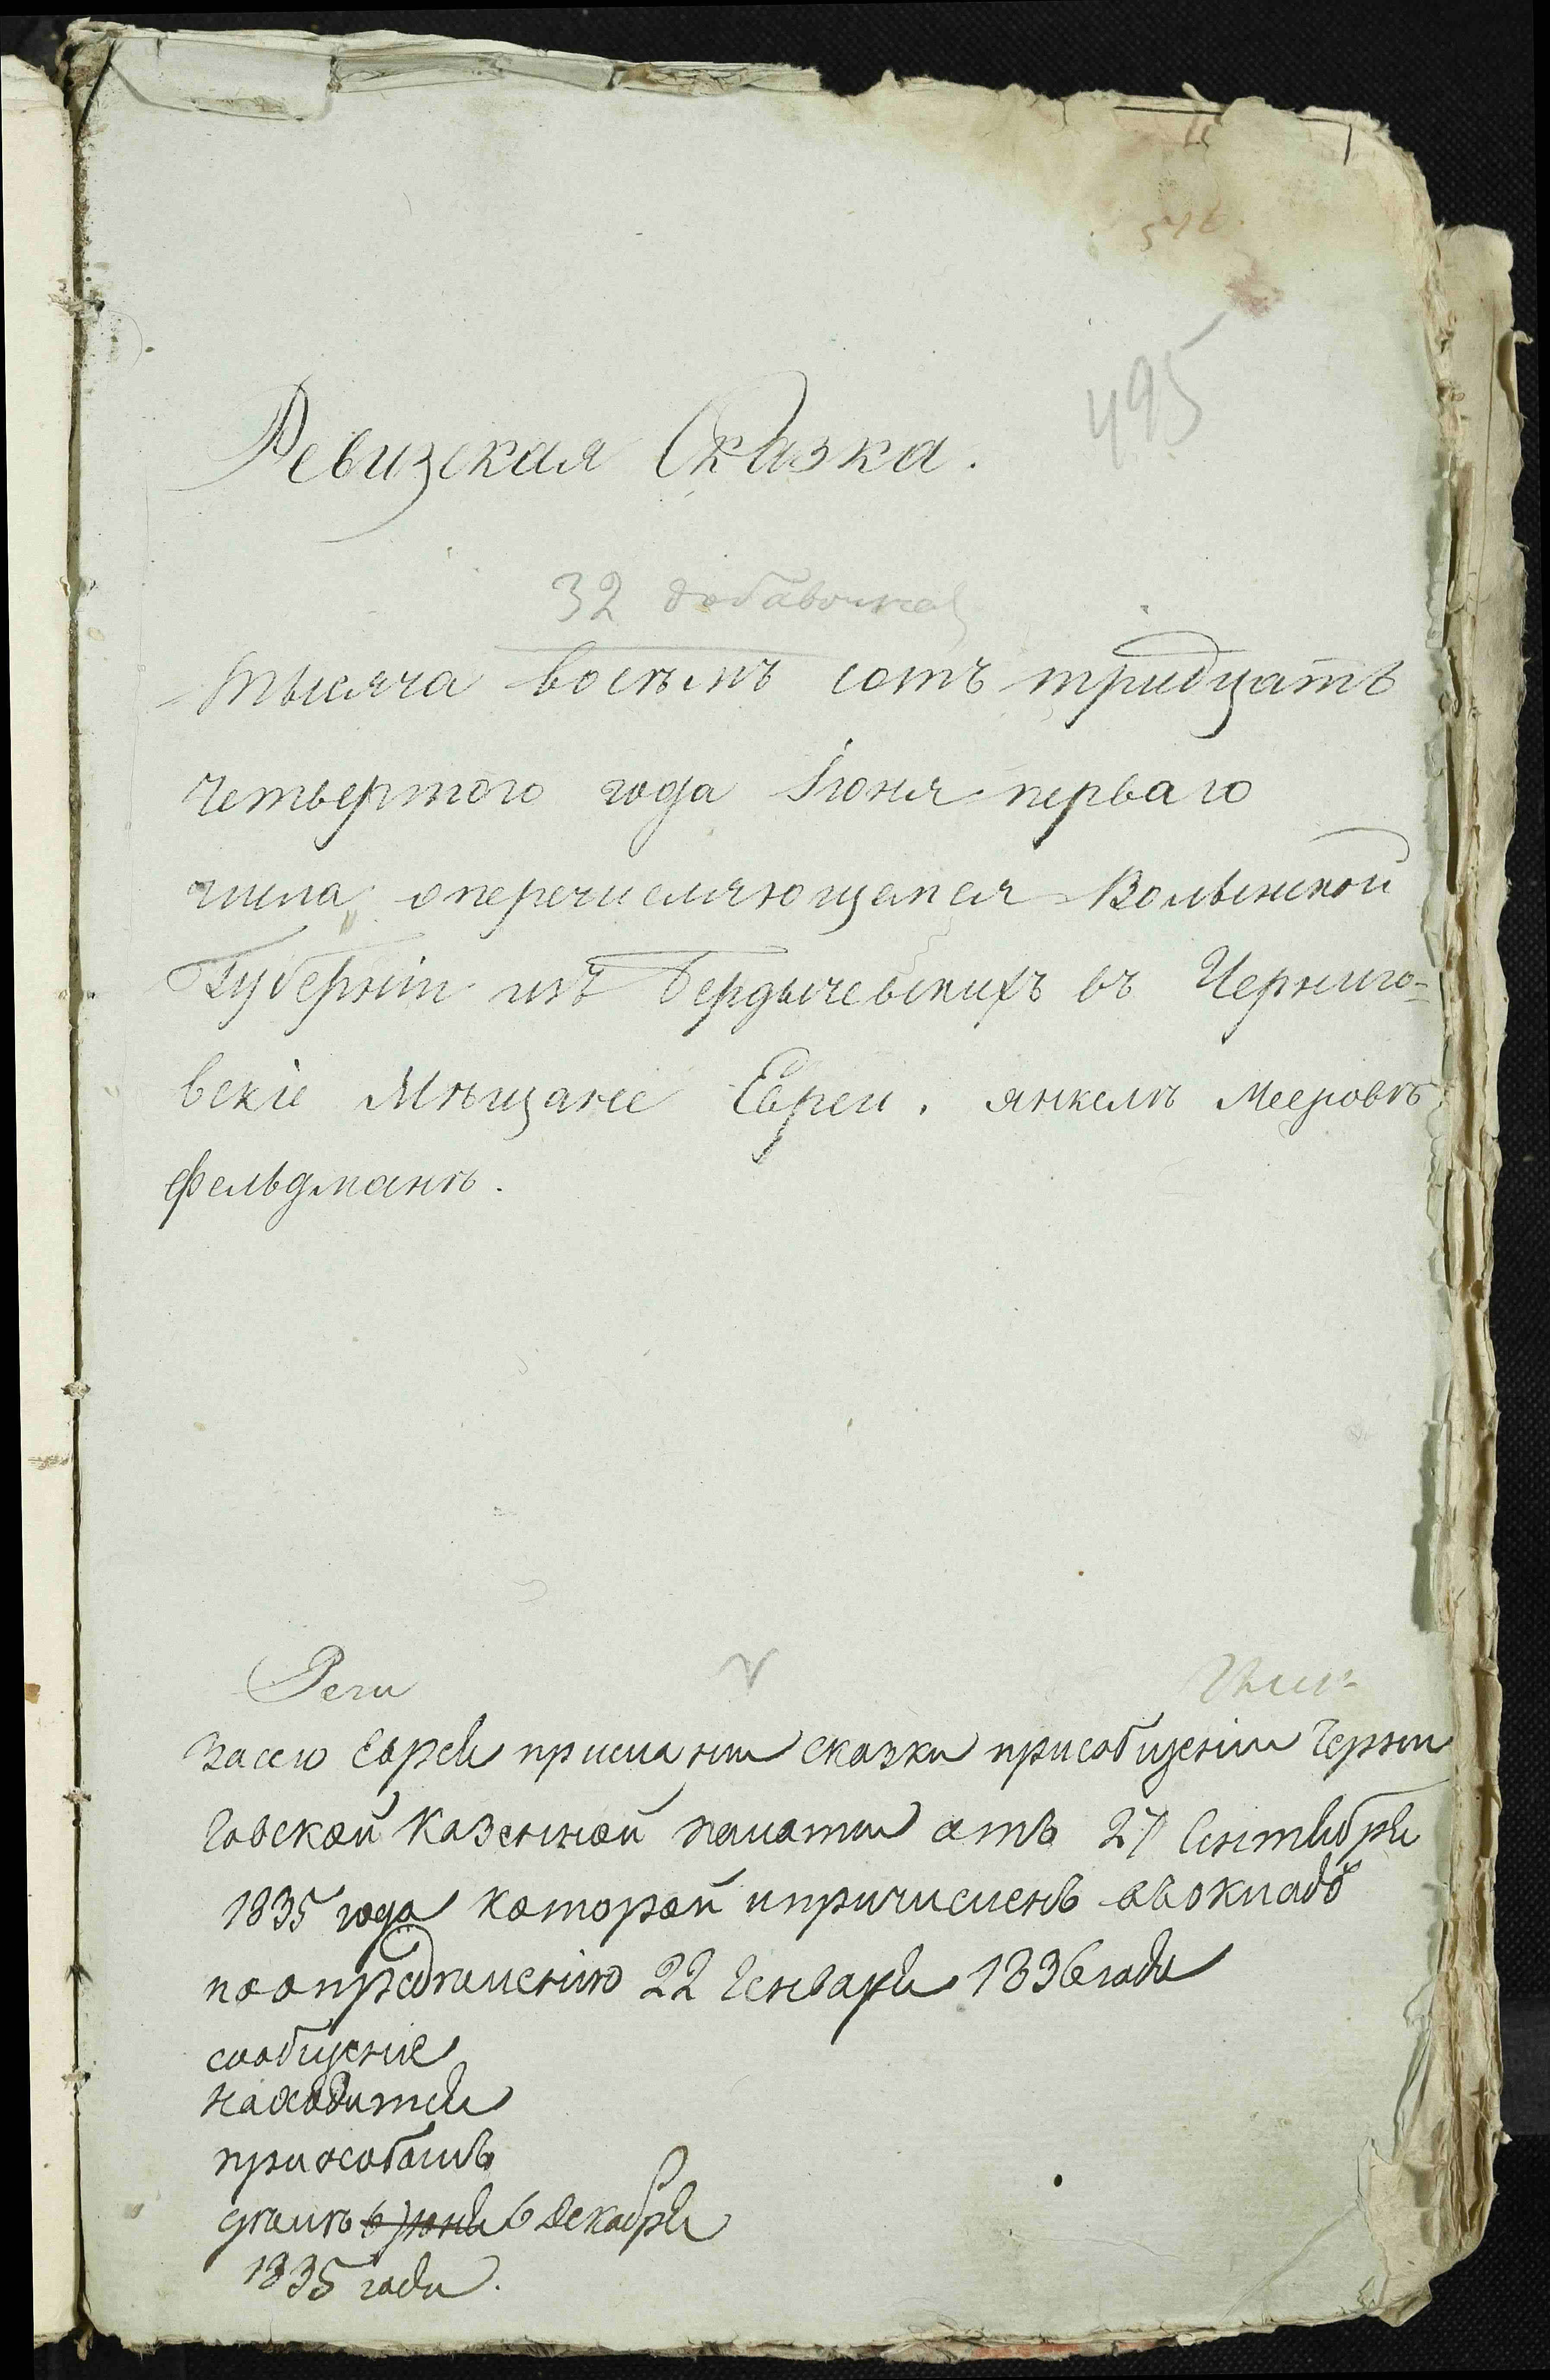 495
Ревизская Сказка.
32 добавочная
тысяча восемъ сотъ тридцать
четвертого года Іюня перваго
числа, оперечисляющемся Волынской
Губерніи изъ Бердычевскихъ въ Черниго-
вскіе Мѣщане Евреи. янкель Мееровъ
фельдманъ.
Засего Еврея присланы сказки присобщеніи Черни
говской Казенной палаты отъ 27 Сентября
1835 года которой ипричисленъ авокладъ
поопредѣленію 22 Генваря 1836 года
сообщеніе
находится
приособомъ
дѣлѣ 6 Іюня 6 декабря
1835 года.